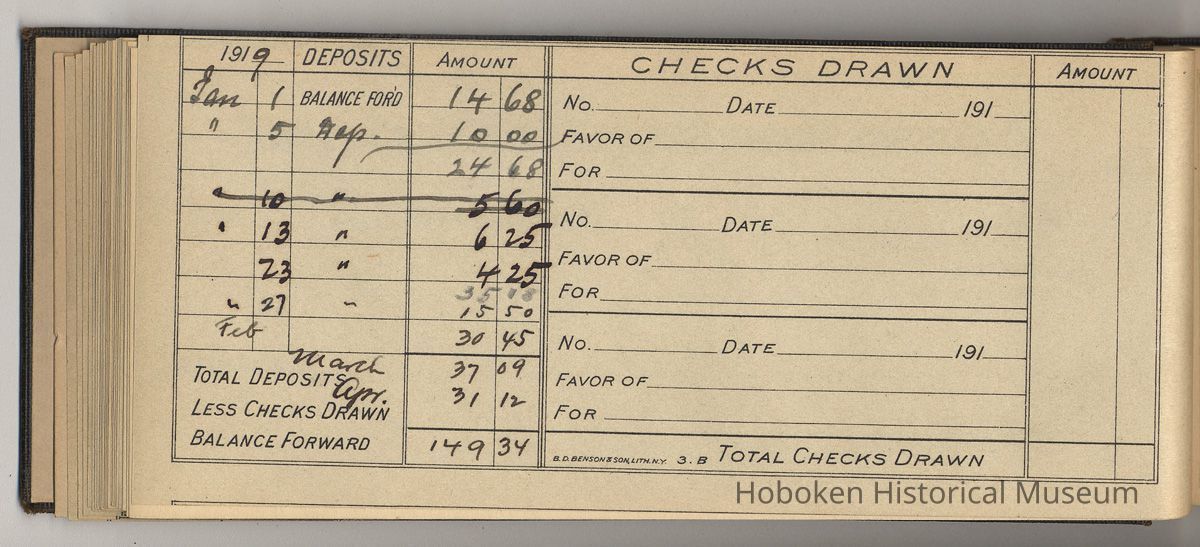 1919 DEPOSITS AMOUNT
Jan 1 BALANCE FOR'D 14 68
" 5 Dep. 10 00
24 68
" 10 " 5 60
" 13 " 6 25
23 " 4 25
35 18
" 27 " 15 50
Feb 30 45
March 37 09
TOTAL DEPOSITS
Apr. 31 12
LESS CHECKS DRAWN
BALANCE FORWARD 149 34
CHECKS DRAWN AMOUNT
No. DATE 191
FAVOR OF
FOR
No. DATE 191
FAVOR OF
FOR
No. DATE 191
FAVOR OF
FOR
B.D. BENSON & SON, LITH. N.Y. 3.B TOTAL CHECKS DRAWN
Hoboken Historical Museum